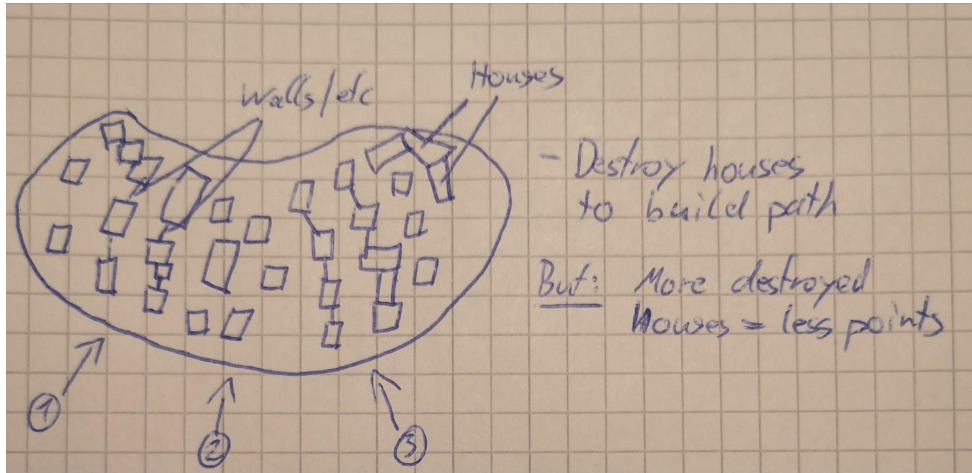 Walls/etc
Houses
- Destroy houses
to build path
But: More destroyed
Houses = less points
1
2
3